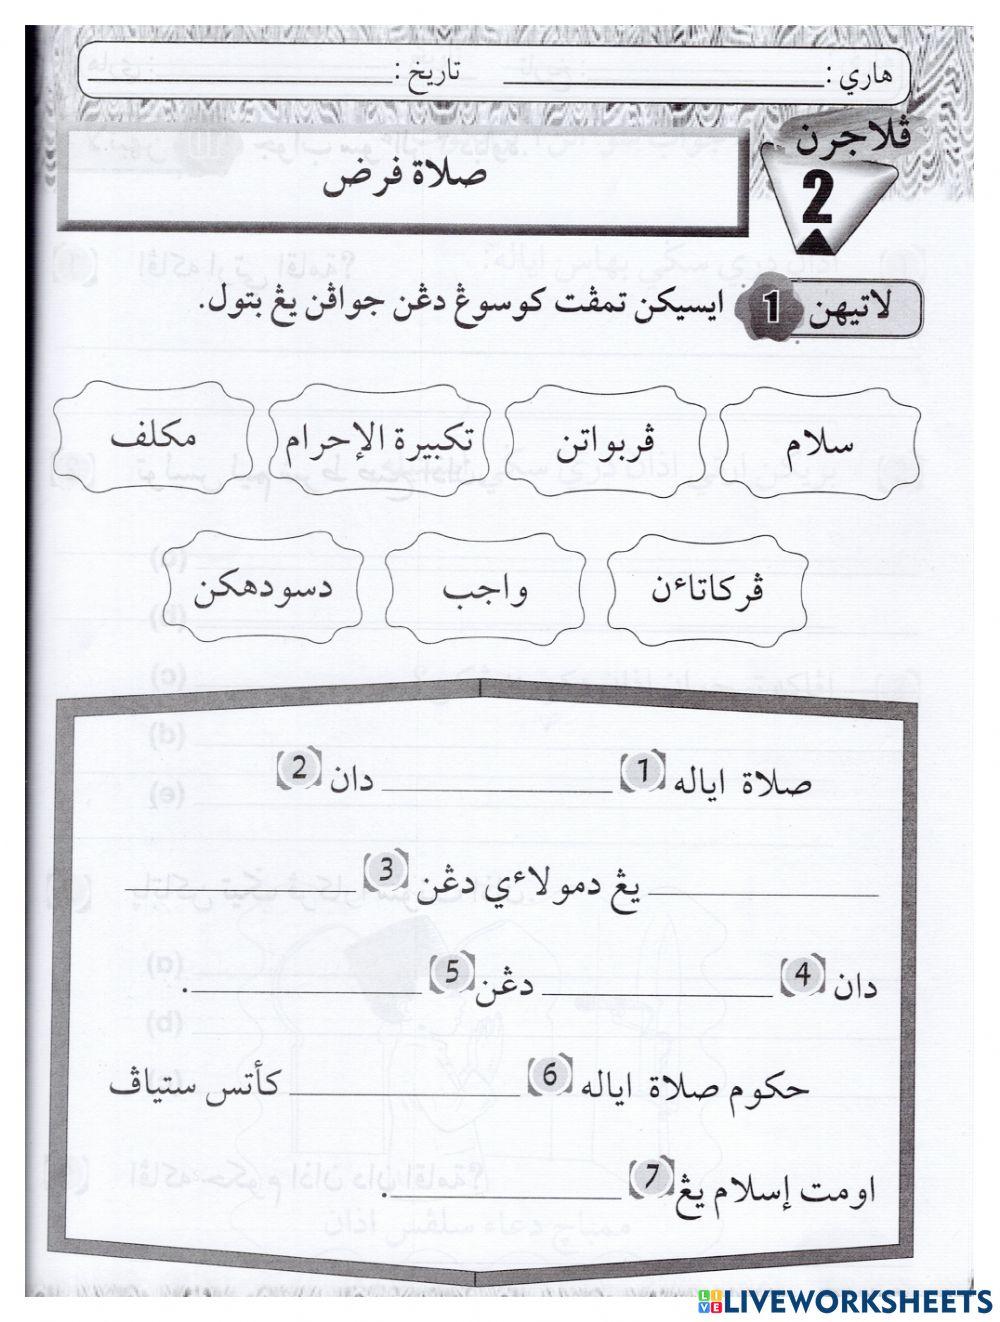 هاري : ____________ تاريخ : ____________
ڤلاجرن
2
صلاة فرض
لاتيهن 1 ايسيكن تمڤت كوسوڠ دڠن جواڤن يڠ بتول.
سلام ڤربواتن تكبيرة الإحرام مكلف
ڤركاتاءن واجب دسودهكن
صلاة اياله 1 ____________ دان 2
____________ يڠ دمولاءي دڠن 3 ____________
دان 4 ____________ دڠن 5 ____________.
حكوم صلاة اياله 6 ____________ كأتس ستياڤ
اومت إسلام يڠ 7 ____________.
LIVEWORKSHEETS